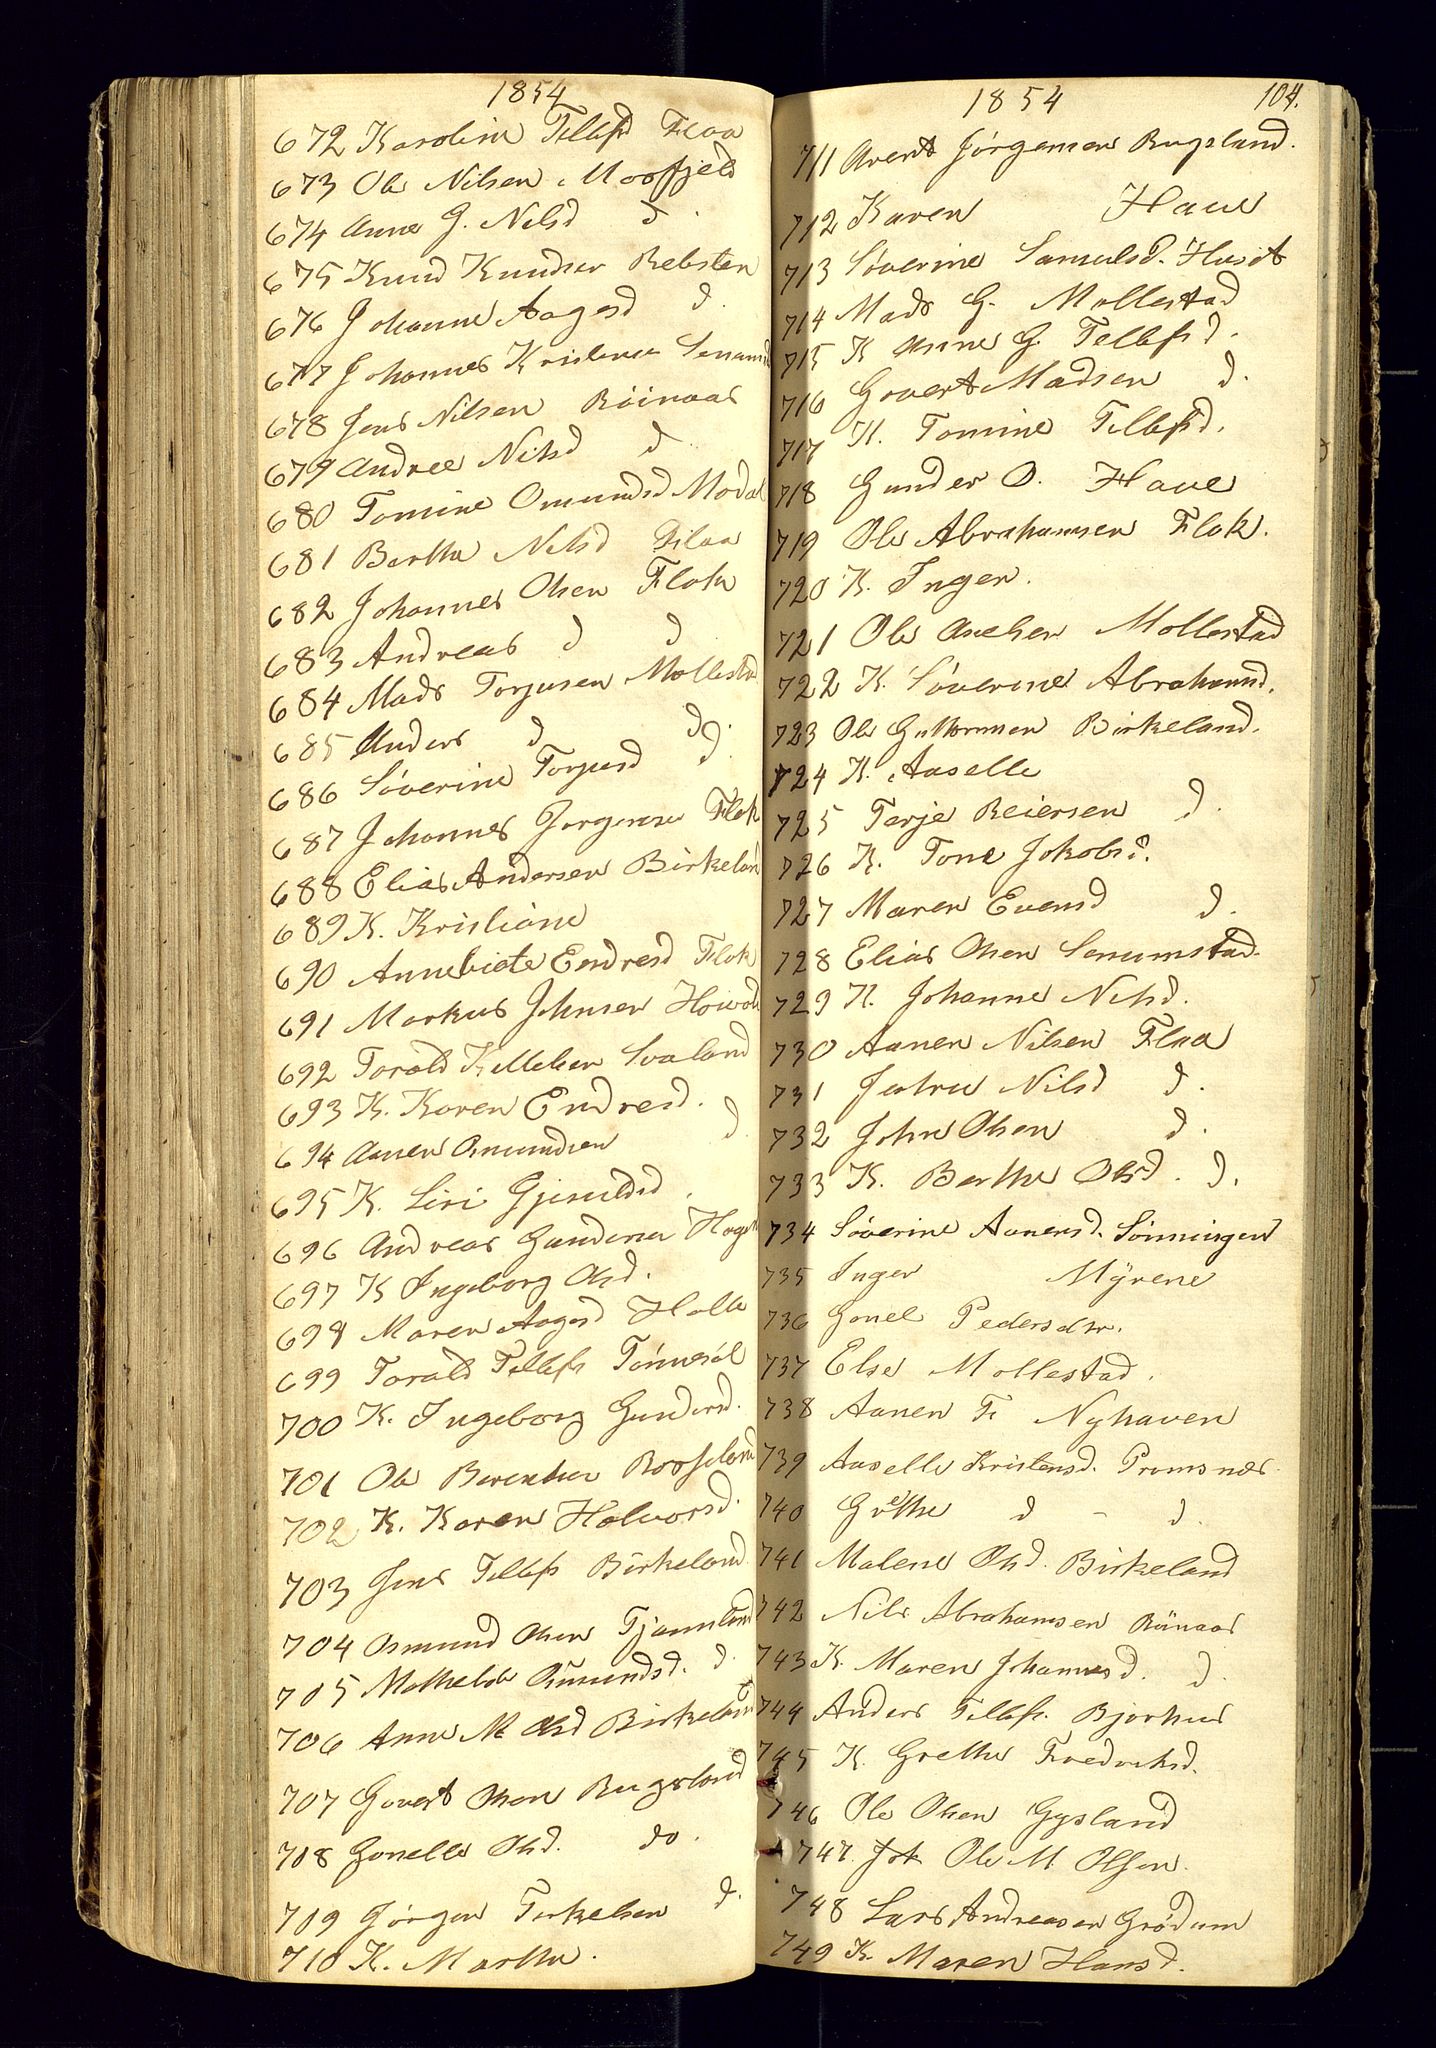 1854
672 Karoline Tellefsd Flaa
673 Ole Nilsen Mosfjeld
674 Anne G. Nilsd d.
675 Knud Knudsen Rebsten
676 Johanne Aagesd d.
677 Johannes Kristensen Senumst
678 Jens Nilsen Röinaas
679 Andrea Nilsd d
680 Tomine Omundsd Modal
681 Berthe Nilsd
682 Johannes Olsen Flak
683 Andreas d d
684 Mads Torjusen Mollestad
685 Anders d d.
686 Söverine Torjusd d.
687 Johannes Jörgensen Flak
688 Elias Andersen Birkeland
689 K. Kristiane
690 Annebiete Endresd Flak
691 Markus Johnsen
692 Torald Kittelsen Svaland
693 K. Karen Endresd.
694 Aanen Omundsen d
695 K. Siri Gjeruldsd.
696 Andreas Gundersen
697 K Ingeborg Olsd.
698 Maren Aagesd Holle
699 Torald Tellefs Tönnesöl
700 K. Ingeborg Gundersd.
701 Ole Berentsen Rosseland
702 K. Karen Halvorsd.
703 Jens Tellefs Birkeland
704 Osmund Olsen Tjomsland
705 Mathilde Omundsd. d.
706 Anne M Olsd Birkeland
707 Govert Olsen Rugsland
708 Gonelle Olsd. do.
709 Jörgen Terkelsen d.
710 K. Marthe.
1854 104.
711 Arent Jörgensen Rugsland.
712 Karen Haue
713 Söverine Samuelsd. Huset
714 Mads G. Mollestad
715 K Anne G. Tellefsd.
716 Govert Madsen d.
717 K. Tomine Tellefsd.
718 Gunder O. Haue
719 Ole Abrahamsen Flak.
720 K. Inger.
721 Ole Axelsen Mollestad
722 K. Söverine Abrahamsd.
723 Ole Guttormsen Birkeland.
724 K. Aaselle
725 Terje Reiersen d.
726 K. Tone Jakobsd.
727 Maren Evensd d.
728 Elias Olsen Senumstad.
729 K. Johanne Nilsd.
730 Aanen Nilsen Flaa
731 Jertru Nilsd d.
732 John Olsen d.
733 K. Berthe Olsd. d.
734 Söverine Aanensd. Sönningen
735 Inger Myrene
736 Gonel Pedersdtr.
737 Else Mollestad.
738 Aanen T. Nyhaven
739 Aaselle Kristensd. Promsnes
740 Grethe d - d.
741 Malene Olsd. Birkeland
742 Nils Abrahamsen Rönaas
743 K. Maren Johannesd. d.
744 Anders Tellefs. Bjorhus
745 K. Grethe Fredriksd.
746 Ole Olsen Gysland
747. Joh Ole M. Olsen.
748 Lars Andreasen Grödum
749 K. Maren Hansd.